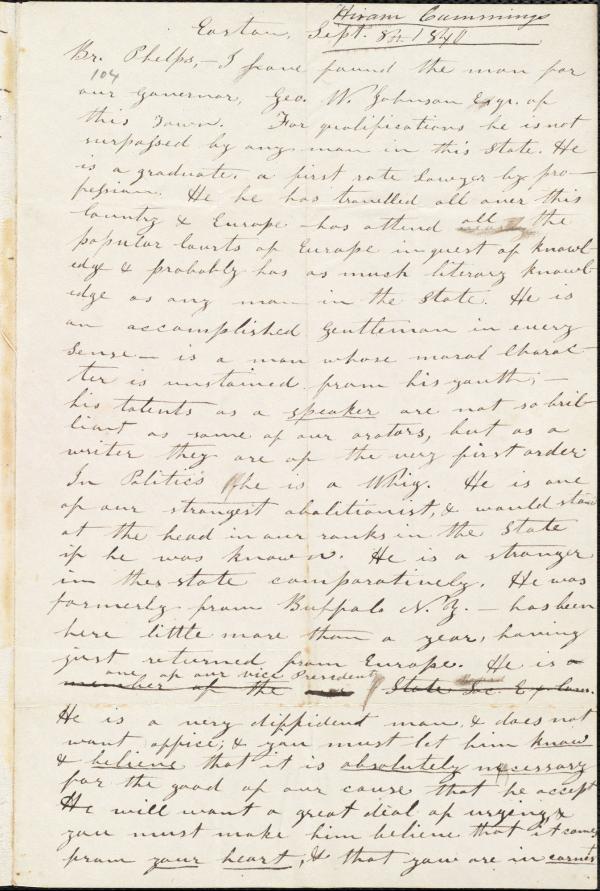 Hiram Cummings
Easton, Sept. 8th 1840
Br. Phelps,— I have found the man for
104
our Governor, Geo. W. Johnson Esqr. of
this Town. For qualifications he is not
surpassed by any man in this State. He
is a graduate, a first rate lawyer by pro-
fession. He he has travelled all over this
Country & Europe - has attend all the
popular Courts of Europe in quest of knowl
edge & probably has as much literary knowl-
edge as any man in the State. He is
an accomplished Gentleman in every
Sense — is a man whose moral Charac-
ter is unstained from his youth; —
his talents as a speaker are not so bril-
liant as some of our orators, but as a
writer they are of the very first order.
In Politics he is a Whig. He is one
of our strongest abolitionist, & would stand
at the head in our ranks in the State
if he was known. He is a stranger
in this state comparatively. He was
formerly from Buffalo N.Y. — has been
here little more than a year, having
just returned from Europe. He is a
one of our vice Presidents
member of the State Soc. Ex Com.
He is a very diffident man, & does not
want office; & you must let him know
& believe that it is absolutely necessary
for the good of our cause that he accept
He will want a great deal of urging, &
you must make him believe that it comes
from your heart, & that you are in earnest